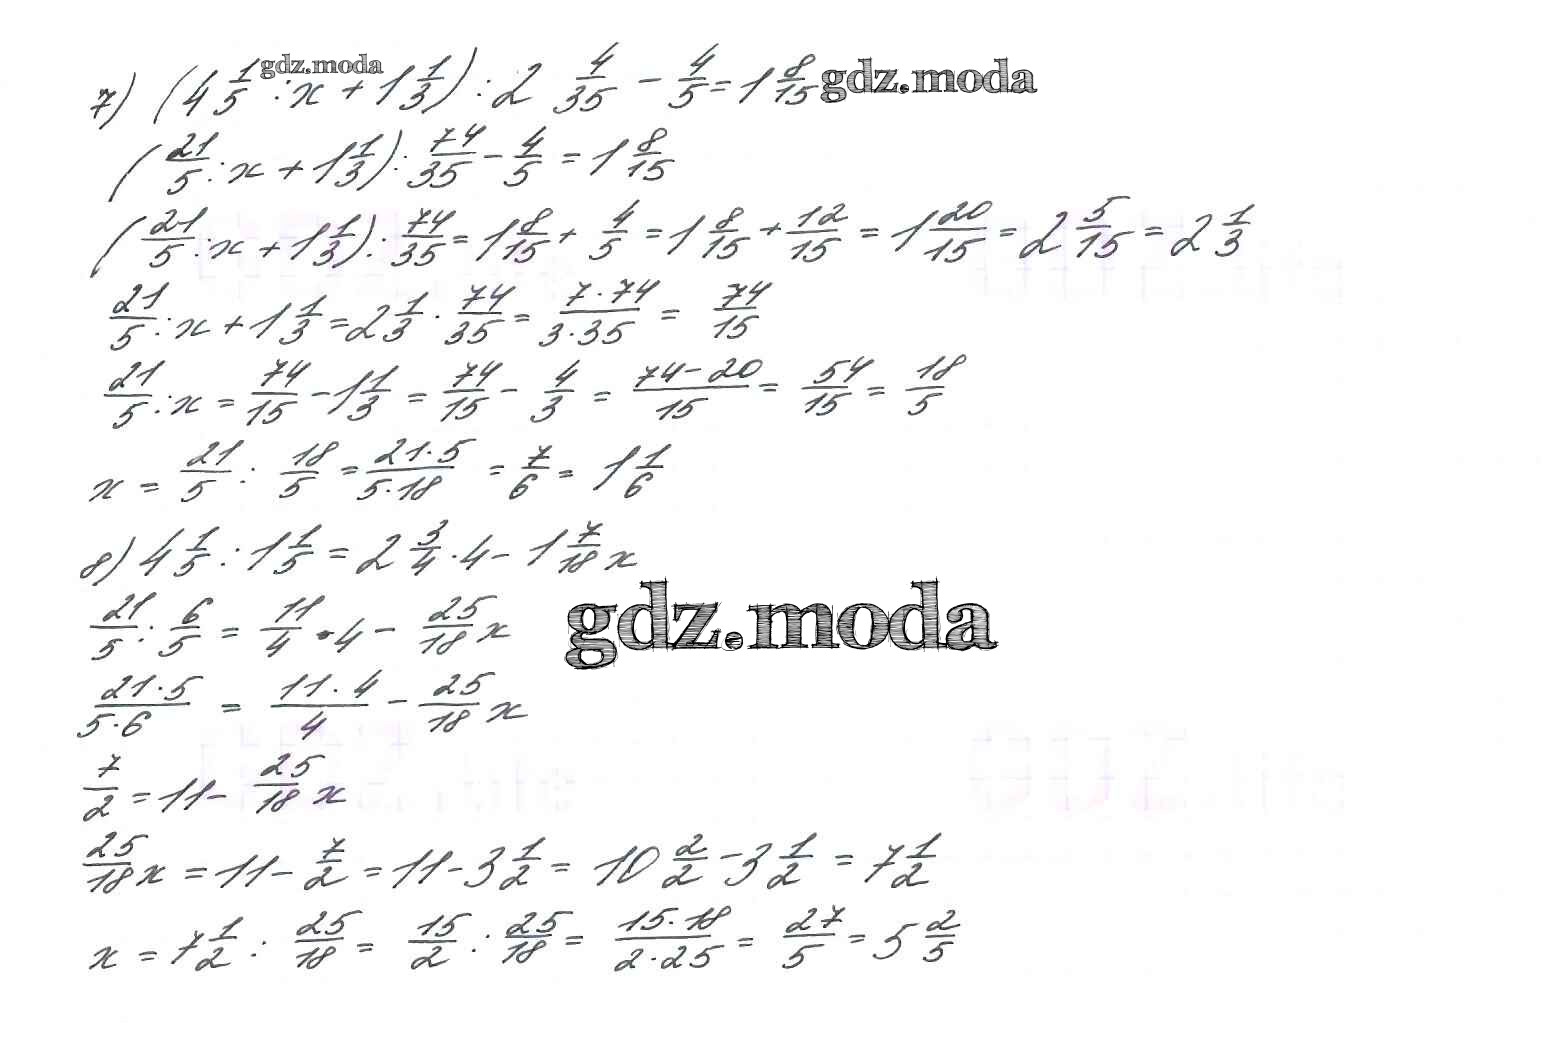 7) (4 1/5 : x + 1 1/3) : 2 4/35 - 4/5 = 1 8/15
gdz.moda
gdz.moda
(21/5 : x + 1 1/3) : 74/35 - 4/5 = 1 8/15
(21/5 : x + 1 1/3) : 74/35 = 1 8/15 + 4/5 = 1 8/15 + 12/15 = 1 20/15 = 2 5/15 = 2 1/3
21/5 : x + 1 1/3 = 2 1/3 · 74/35 = 7·74/3·35 = 74/15
21/5 : x = 74/15 - 1 1/3 = 74/15 - 4/3 = 74-20/15 = 54/15 = 18/5
x = 21/5 : 18/5 = 21·5/5·18 = 7/6 = 1 1/6
8) 4 1/5 : 1 1/5 = 2 3/4 · 4 - 1 7/18 x
21/5 : 6/5 = 11/4 · 4 - 25/18 x
gdz.moda
21·5/5·6 = 11·4/4 - 25/18 x
7/2 = 11 - 25/18 x
25/18 x = 11 - 7/2 = 11 - 3 1/2 = 10 2/2 - 3 1/2 = 7 1/2
x = 7 1/2 : 25/18 = 15/2 : 25/18 = 15·18/2·25 = 27/5 = 5 2/5